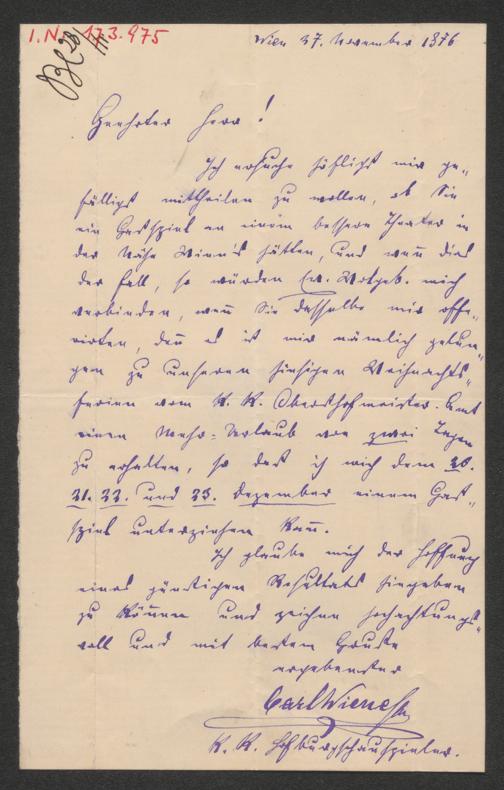 I.N. 173.975
Wien 27. November 1876
Geehrter Herr!
Ich ersuche höflichst mir ge-
fälligst mittheilen zu wollen, ob Sie
ein Gastspiel an einem bessern Theater in
der Nähe Wien's hätten, und wenn dies
der Fall, so würden Ew. Wolgeb. mich
verbinden, wenn Sie dasselbe mir offe-
rirten, denn es ist mir nämlich gelun-
gen zu unseren hiesigen Weihnachts-
ferien vom K. K. Obersthofmeister-Amt
einen Mehr-Urlaub von zwei Tagen
zu erhalten, so daß ich mich dem 20.
21. 22. und 23. Dezember einem Gast-
spiel unterziehen kann.
Ich glaube mich der Hoffnung
eines günstigen Resultats hingeben
zu können und zeichne hochachtungs-
voll und mit bestem Gruße
ergebenster
Carl Wiene
K. K. Hofburgschauspieler.